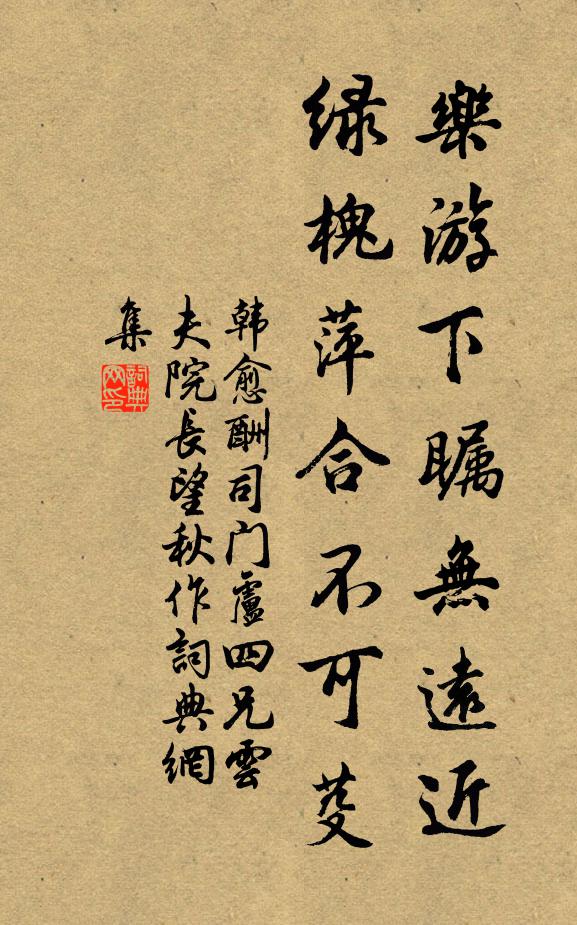 樂游下瞩無遠近
绿槐萍合不可芟
韩愈酬司门盧四兄雲
夫院長望秋作詞典網
集
詞典
网印